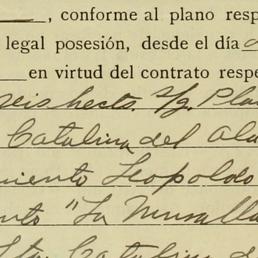 , conforme al plano resp
legal posesión, desde el día
en virtud del contrato respe
seis hects. s/g. Pla
Catalina del Ala
miento Leopoldo
nto "La Muralla
Sta. Catalina d